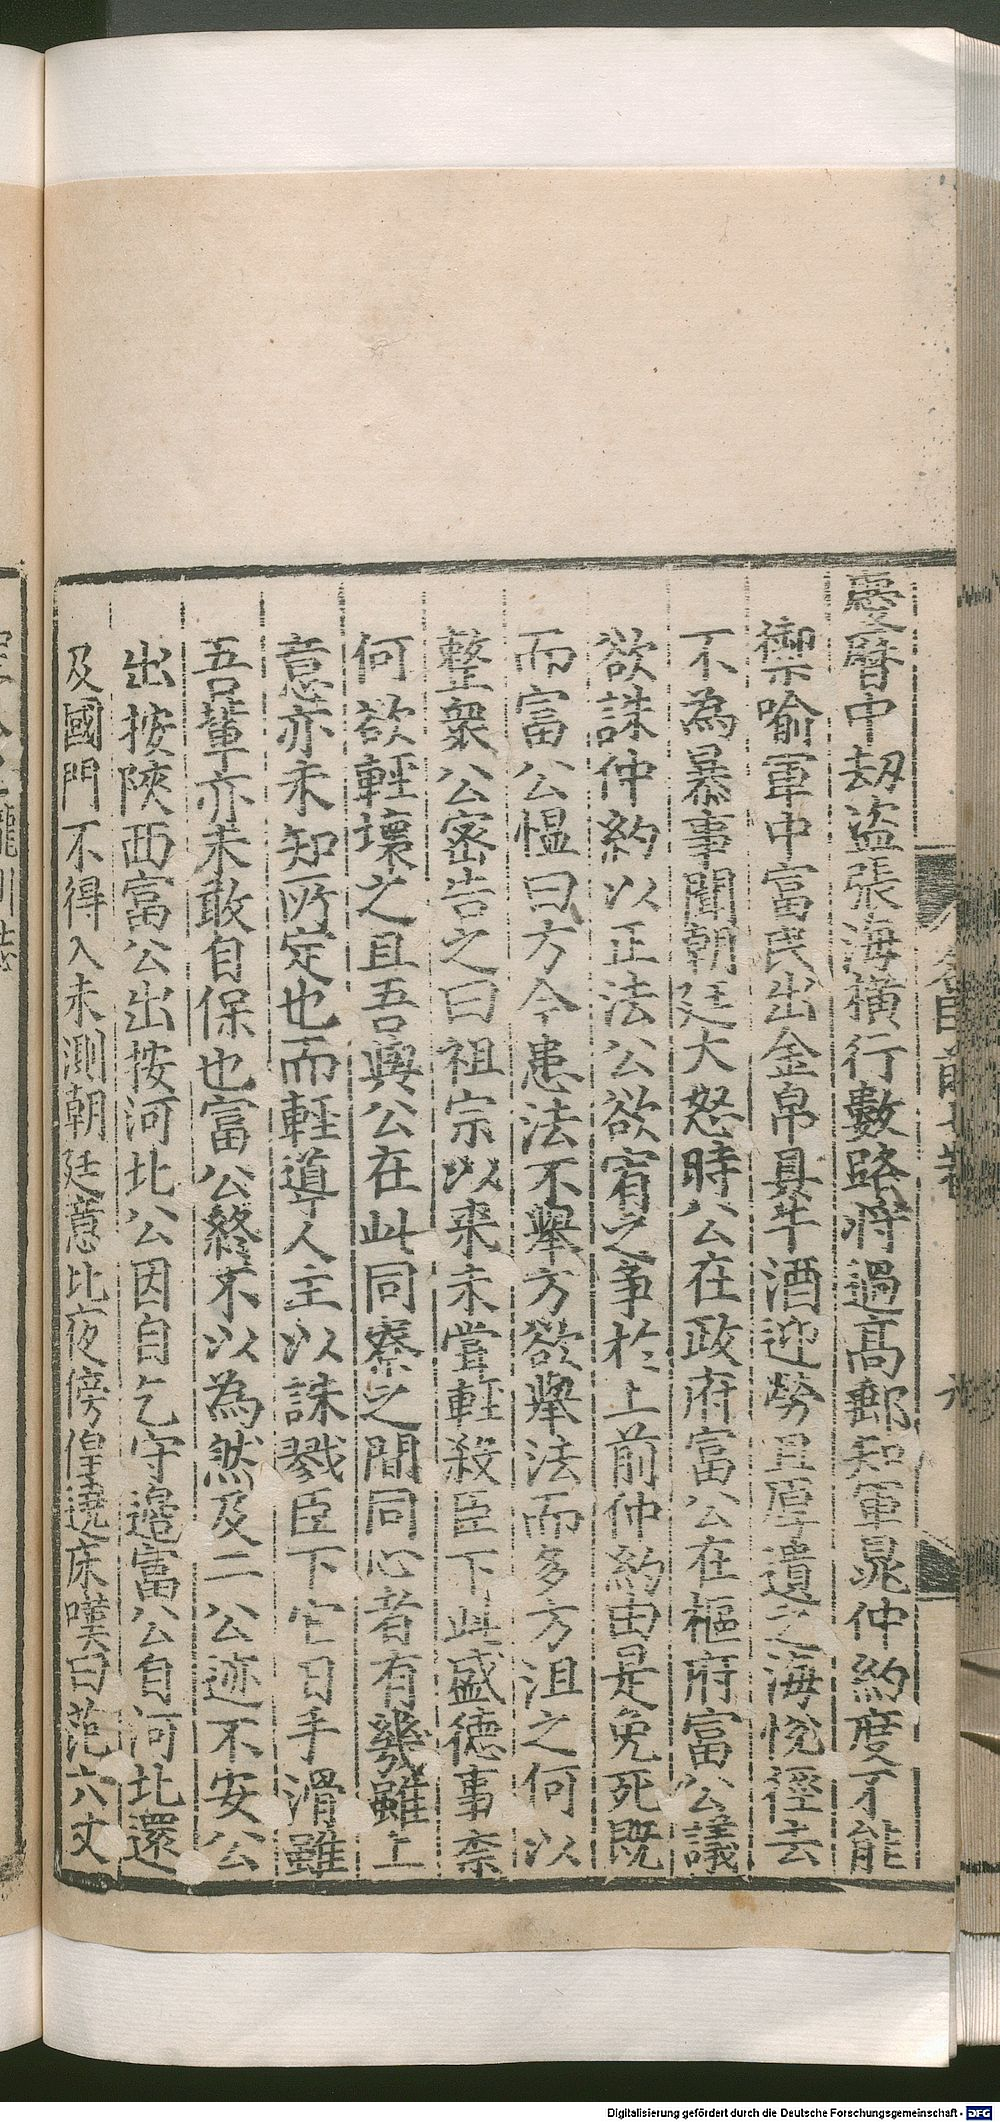 慶曆中劫盜張海橫行數路將過高郵知軍晁仲約度不能
禦喻軍中富民出金帛具牛酒迎勞且厚遺之海悅徑去
不為暴事聞朝廷大怒時公在政府富公在樞府富公議
欲誅仲約以正法公欲宥之爭於上前仲約由是免死既
而富公慍曰方今患法不舉方欲舉法而多方沮之何以
整衆公密告之曰祖宗以來未嘗輕殺臣下此盛德事柰
何欲輕壞之且吾與公在此同寮之間同心者有幾雖上
意亦未知所定也而輕導人主以誅戮臣下它日手滑雖
吾輩亦未敢自保也富公終不以為然及二公迹不安公
出按陝西富公出按河北公因自乞守邊富公自河北還
及國門不得入未測朝廷意比夜傍偟遶床嘆曰范六丈
Digitalisierung gefördert durch die Deutsche Forschungsgemeinschaft - DFG